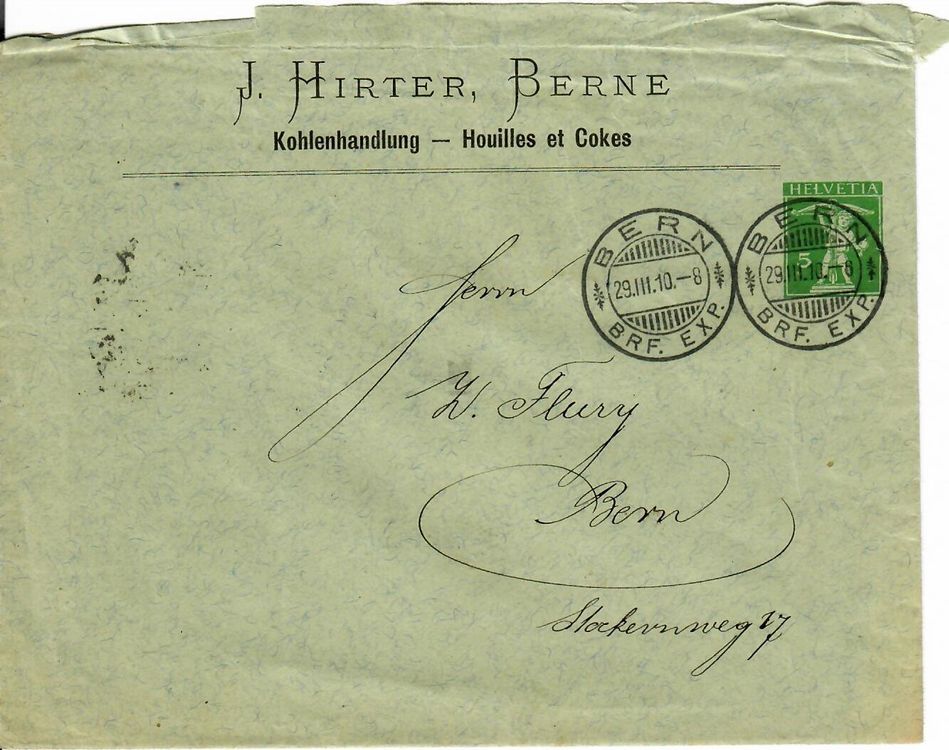 J. HIRTER, BERNE
Kohlenhandlung — Houilles et Cokes
HELVETIA
5
BERN
29.III.10.–8
BRF. EXP.
BERN
29.III.10.–6
BRF. EXP.
Herrn
W. Flury
Bern
Stockernweg 17